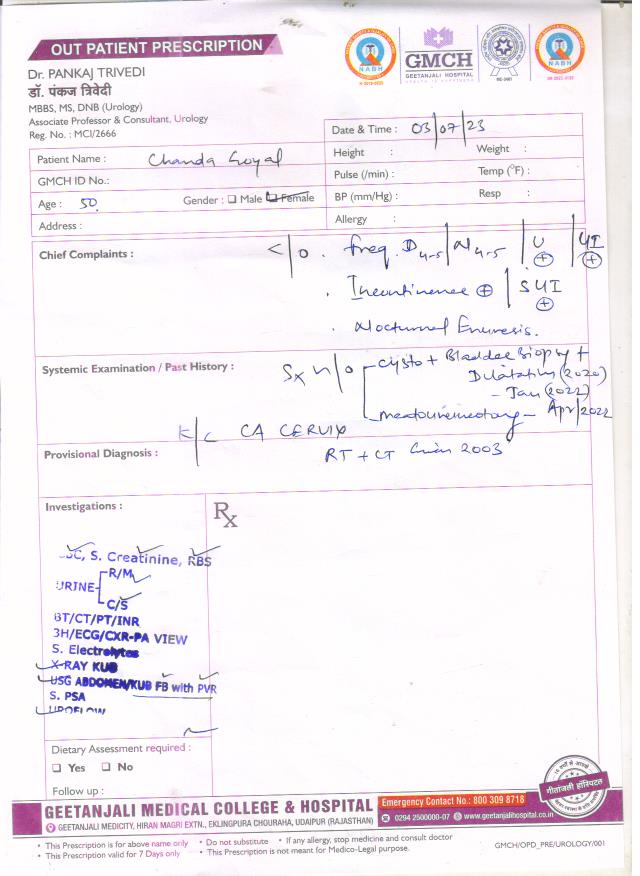 OUT PATIENT PRESCRIPTION
NABH
GMCH
GEETANJALI HOSPITAL
NABH
Dr. PANKAJ TRIVEDI
डॉ. पंकज त्रिवेदी
MBBS, MS, DNB (Urology)
Associate Professor & Consultant, Urology
Reg. No. : MCI/2666
Date & Time : 03/07/23
Patient Name : Chanda Goyal
Height : Weight :
GMCH ID No.:
Pulse (/min) : Temp (°F) :
Age : 50 Gender : Male Female
BP (mm/Hg) : Resp :
Address :
Allergy :
Chief Complaints : C/O. freq. D4-5/N4-5 /U ⊕ /UI ⊕
. Incontinence ⊕ / SUI ⊕
. Nocturnal Enuresis.
Systemic Examination / Past History : Sx n/o cysto + Bladder Biopsy +
Dilatation (2020)
- Jan (2022)
- Apr/2022
K/C CA CERVIX
Provisional Diagnosis : RT + CT 2003
Investigations : Rx
S. Creatinine, RBS
URINE R/M
C/S
BT/CT/PT/INR
3H/ECG/CXR-PA VIEW
S. Electrolytes
X-RAY KUB
USG ABDOMEN/KUB FB with PVR
S. PSA
UROFLOW
Dietary Assessment required :
Yes No
Follow up :
गीतांजली हॉस्पिटल
GEETANJALI MEDICAL COLLEGE & HOSPITAL
Emergency Contact No.: 800 309 8718
GEETANJALI MEDICITY, HIRAN MAGRI EXTN., EKLINGPURA CHOURAHA, UDAIPUR (RAJASTHAN)
0294 2500000-07 www.geetanjalihospital.co.in
• This Prescription is for above name only • Do not substitute • If any allergy, stop medicine and consult doctor
• This Prescription valid for 7 Days only • This Prescription is not meant for Medico-Legal purpose.
GMCH/OPD_PRE/UROLOGY/001